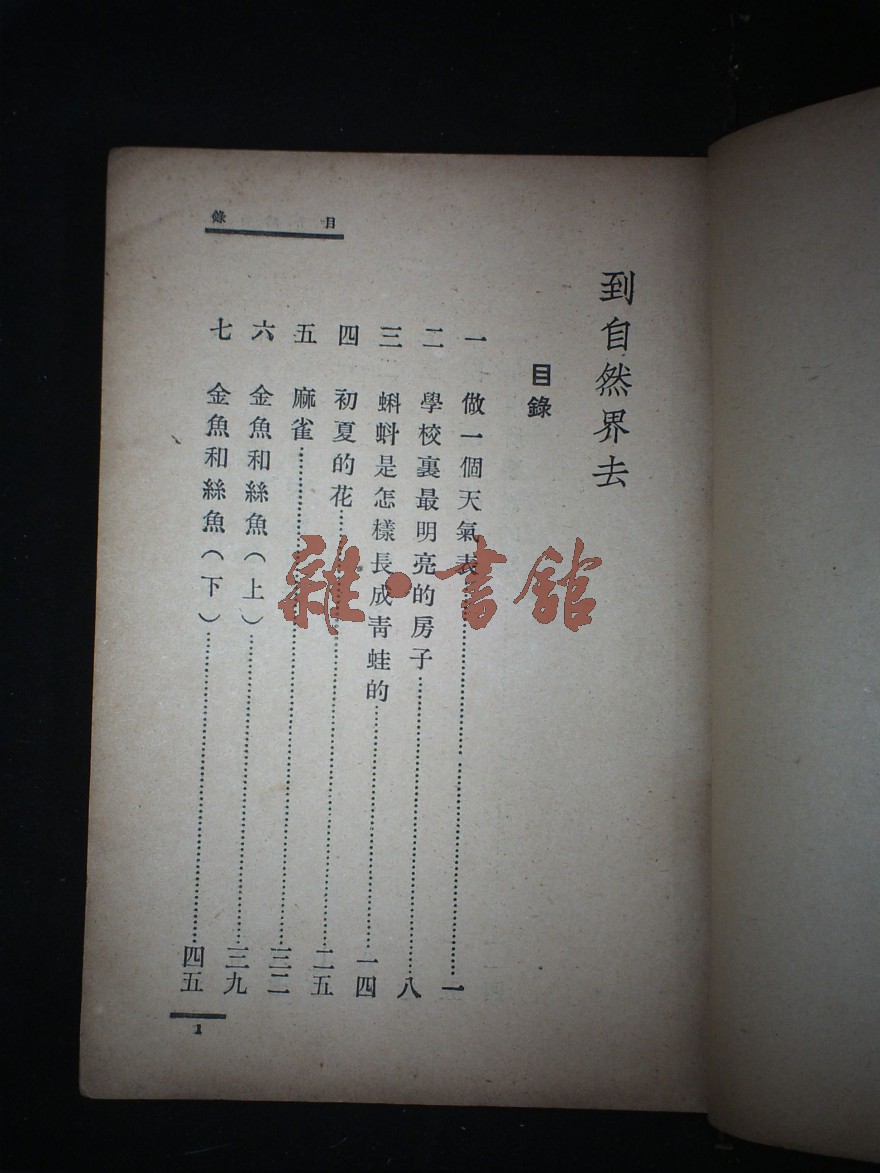 目錄
到自然界去
目錄
一 做一個天氣表……一
二 學校裏最明亮的房子……八
三 蝌蚪是怎樣長成青蛙的……一四
四 初夏的花……二五
五 麻雀……三二
六 金魚和絲魚（上）……三九
七 金魚和絲魚（下）……四五
1
雜·書館